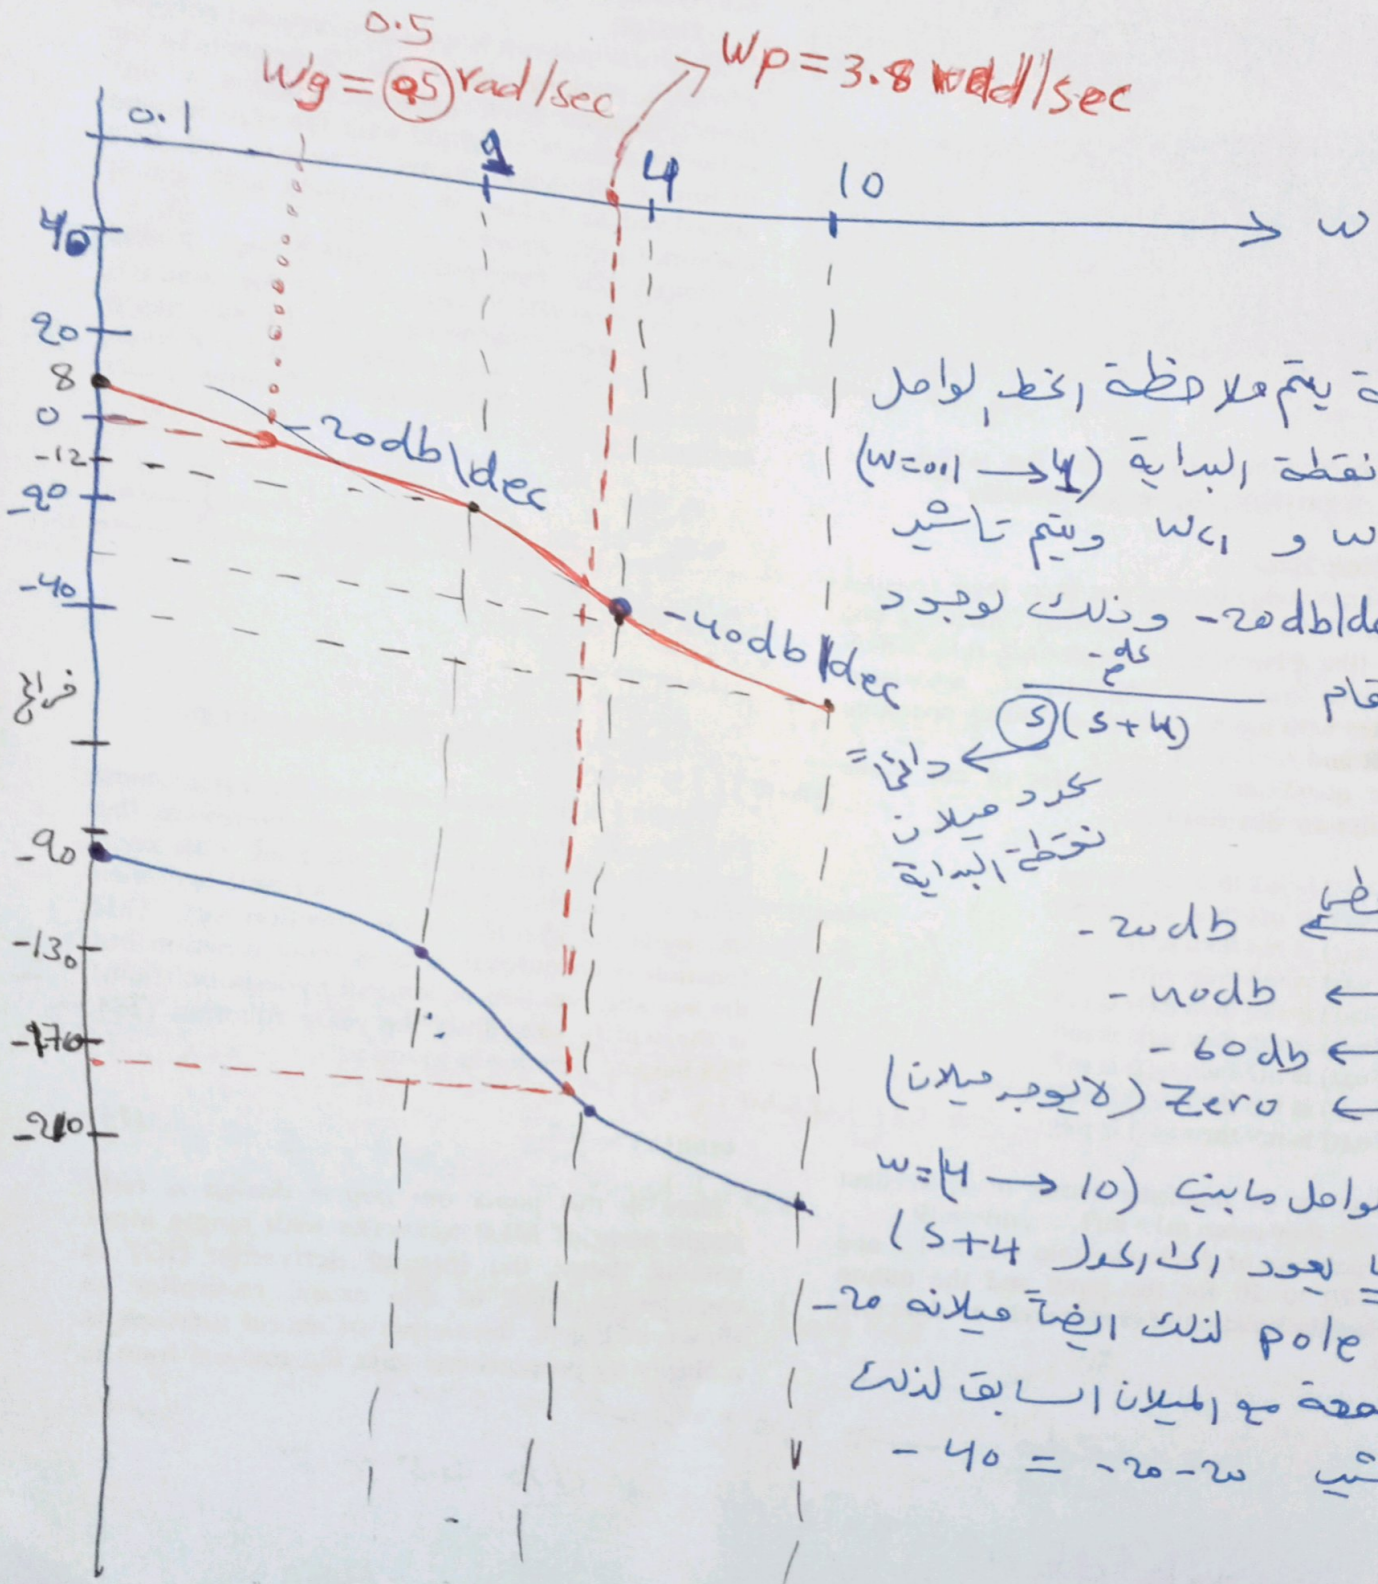 0.5
Wg = 0.5 rad/sec
Wp = 3.8 rad/sec
0.1
1
4
10
w
40
20
8
0
-12
-20
-40
فراغ
-90
-130
-170
-210
-20db\dec
-40db\dec
ة يتم ملاحظة الخط لواصل
نقطة البداية (w=0.1 → 1)
w و Wc1 ويتم تأشير
-20db/de وذلك لوجود
قام
S(S+4)
دائماً
يحدد ميلان
نقطة البداية
← -20db
← -40db
← -60db
← Zero (لا يوجد ميلان)
واصل مابين (w=4 → 10)
يعود الى الحد (S+4
pole لذلك ايضاً ميلانه -20
مع الميلان السابق لذلك
-20-20 = -40